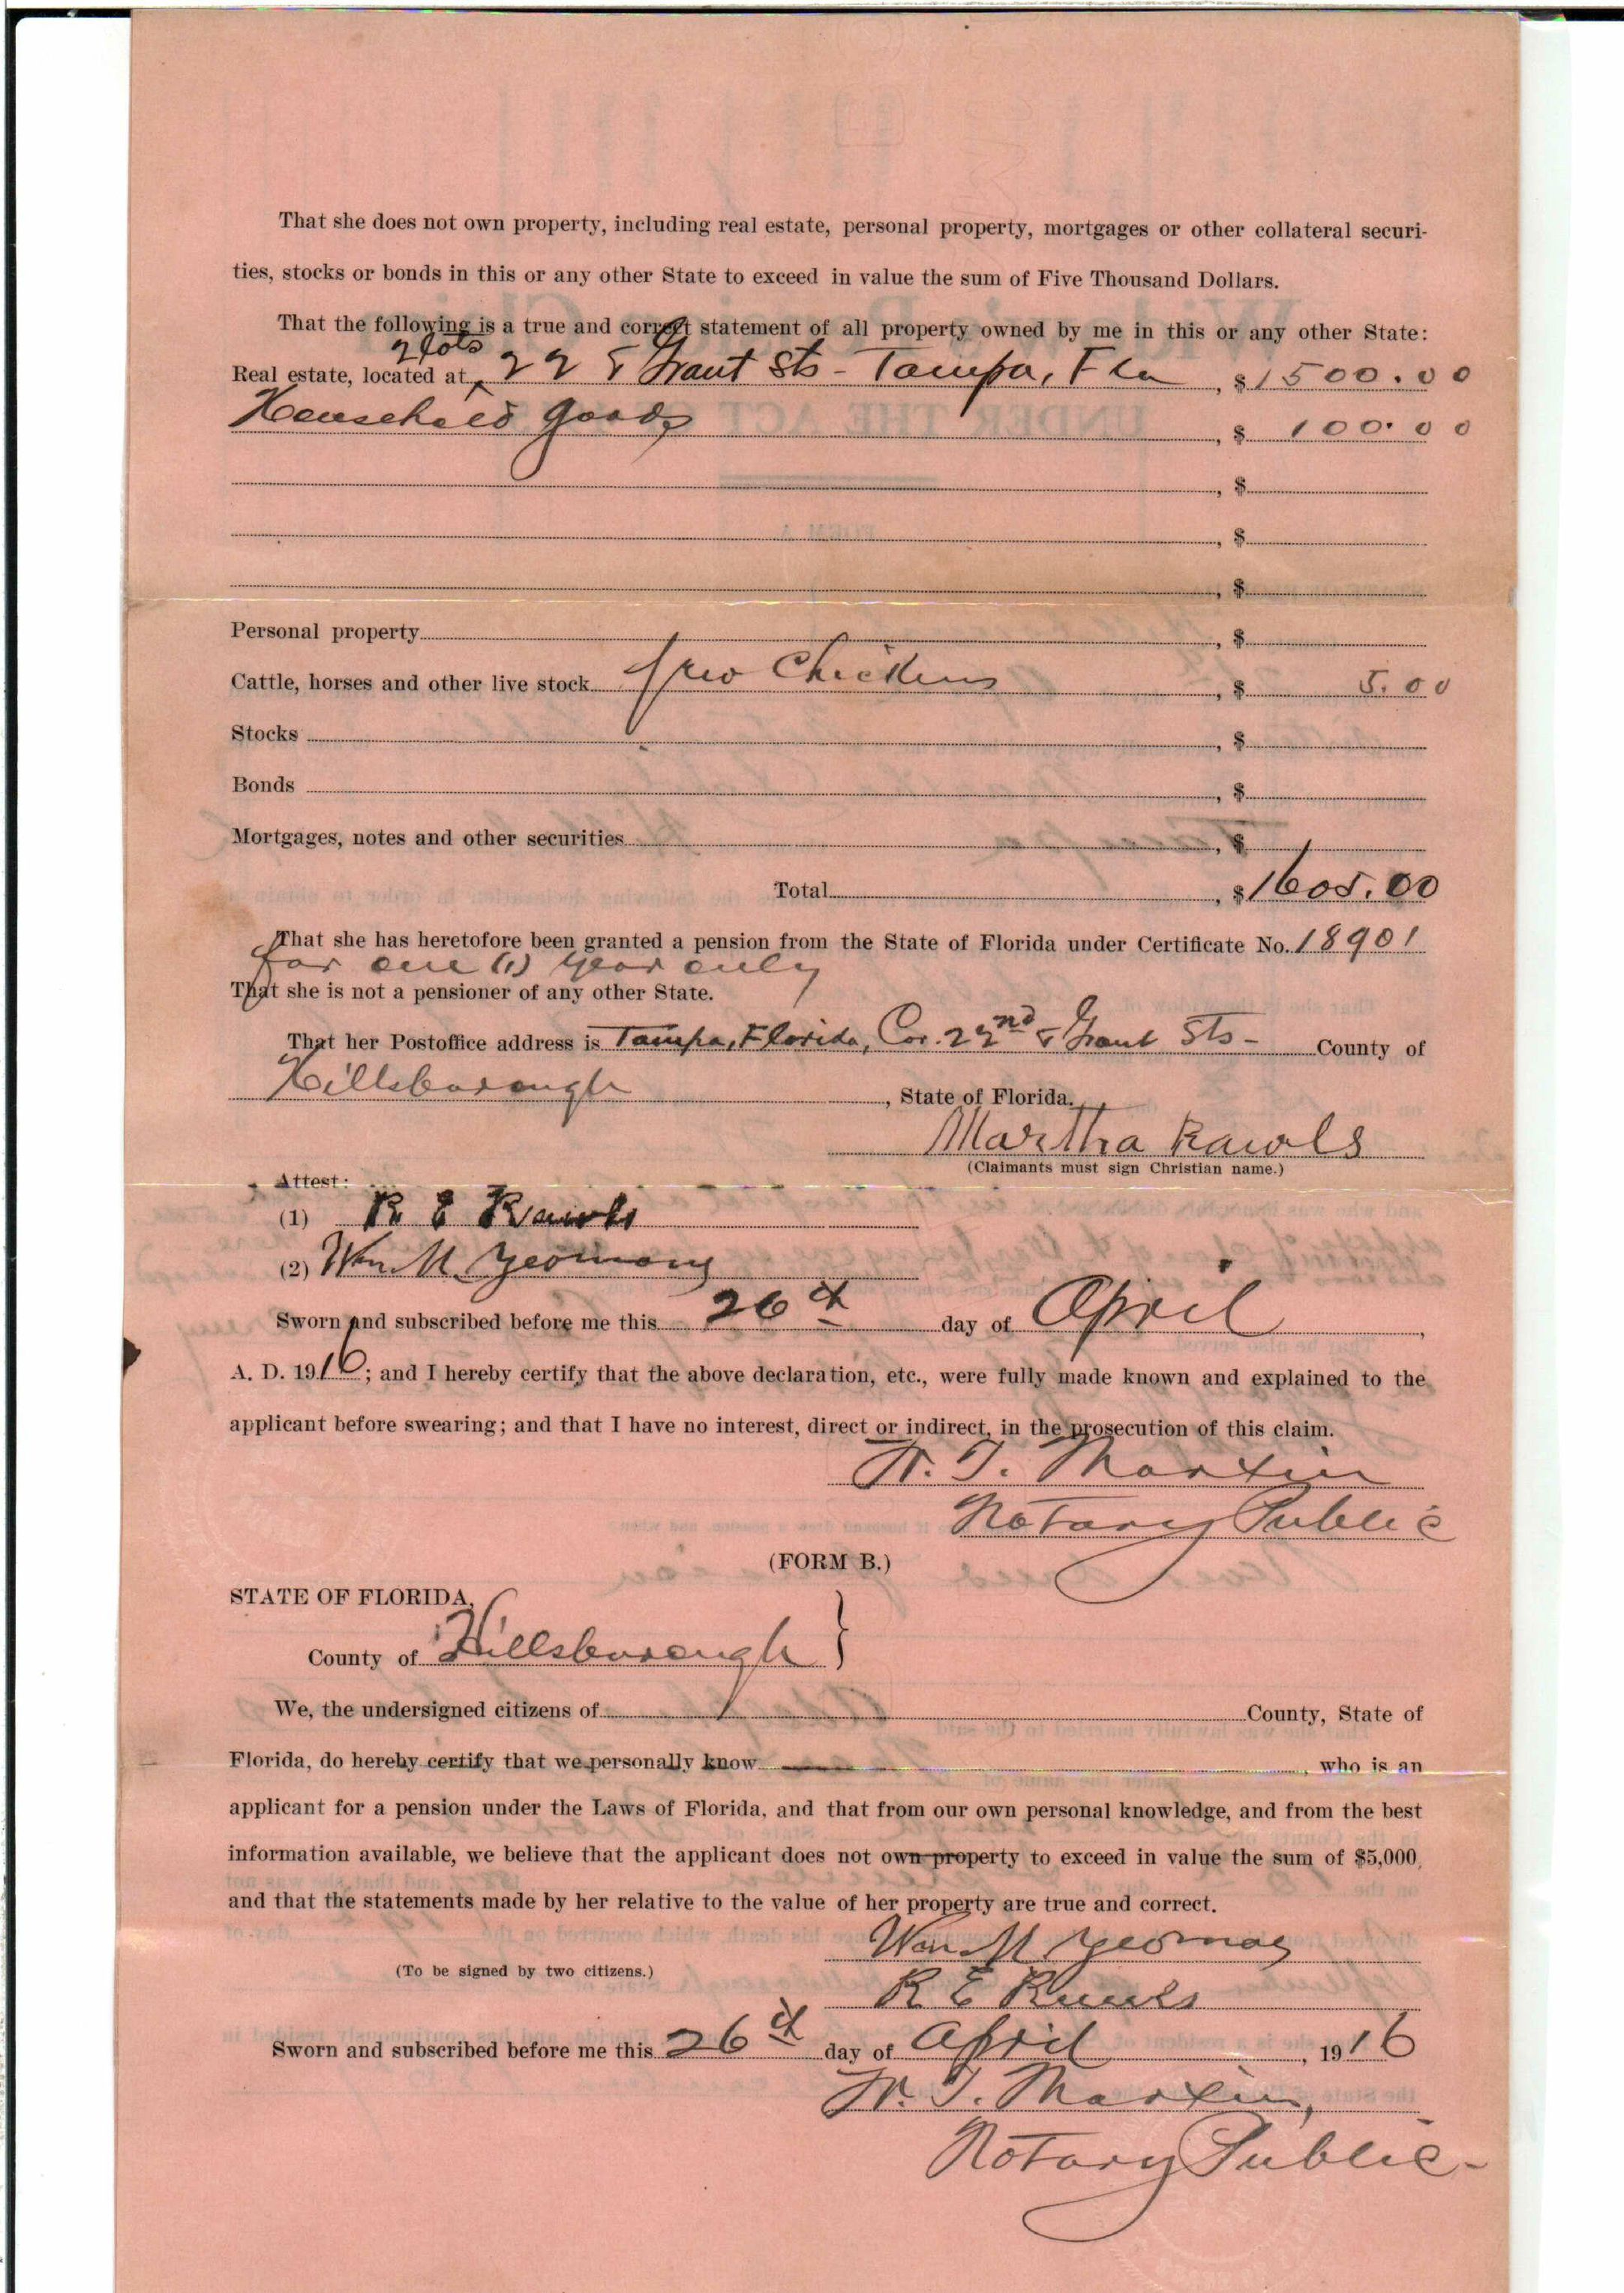 That she does not own property, including real estate, personal property, mortgages or other collateral securi-
ties, stocks or bonds in this or any other State to exceed in value the sum of Five Thousand Dollars.
That the following is a true and correct statement of all property owned by me in this or any other State:
2 lots
Real estate, located at 22 & Grant Sts - Tampa, Fla, $1500.00
Household goods, $ 100.00
, $
, $
, $
Personal property, $
Cattle, horses and other live stock few Chickens, $ 5.00
Stocks, $
Bonds, $
Mortgages, notes and other securities, $
Total, $1605.00
That she has heretofore been granted a pension from the State of Florida under Certificate No. 18901
for one (1) year only
That she is not a pensioner of any other State.
That her Postoffice address is Tampa, Florida, Cor. 22nd & Grant Sts - County of
Hillsborough, State of Florida.
Martha Rawls
(Claimants must sign Christian name.)
Attest:
(1) R E Rawls
(2) Wm. M. Yeomans
Sworn and subscribed before me this 26th day of April,
A. D. 1916; and I hereby certify that the above declaration, etc., were fully made known and explained to the
applicant before swearing; and that I have no interest, direct or indirect, in the prosecution of this claim.
W. T. Martin
Notary Public
(FORM B.)
STATE OF FLORIDA,
County of Hillsborough }
We, the undersigned citizens of County, State of
Florida, do hereby certify that we personally know , who is an
applicant for a pension under the Laws of Florida, and that from our own personal knowledge, and from the best
information available, we believe that the applicant does not own property to exceed in value the sum of $5,000,
and that the statements made by her relative to the value of her property are true and correct.
Wm M Yeomans
(To be signed by two citizens.)
R E Rawls
Sworn and subscribed before me this 26th day of April, 1916
W. T. Martin,
Notary Public-